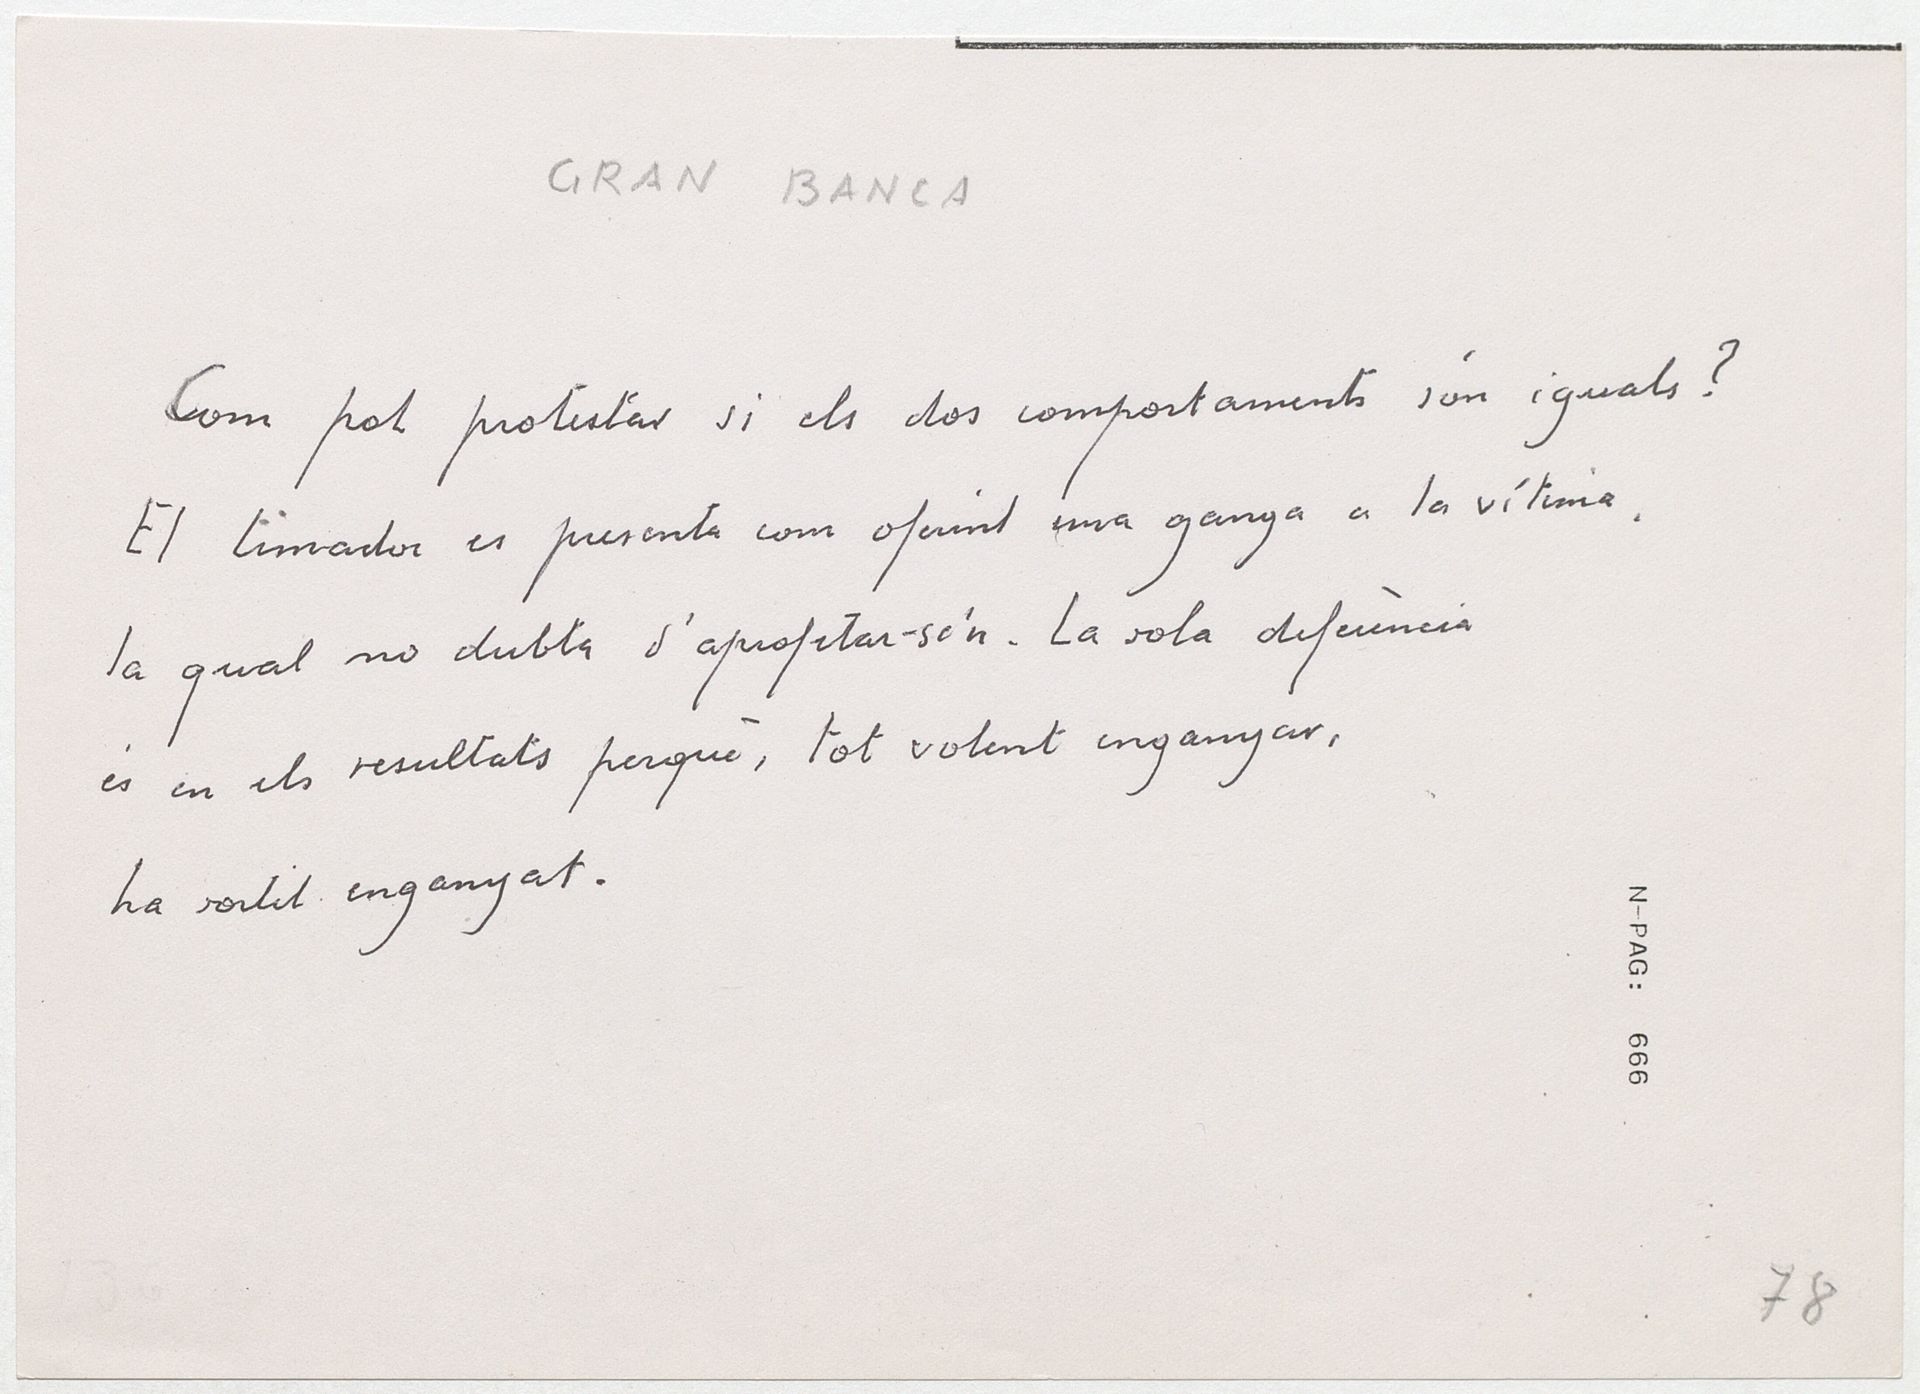 GRAN BANCA
Com pot protestar si els dos comportaments són iguals?
El timador es presenta com oferint una ganga a la vítima,
la qual no dubta d'aprofitar-se'n. La sola deferència
és en els resultats perquè, tot volent enganyar,
ha sortit enganyat.
N-PAG: 666
78